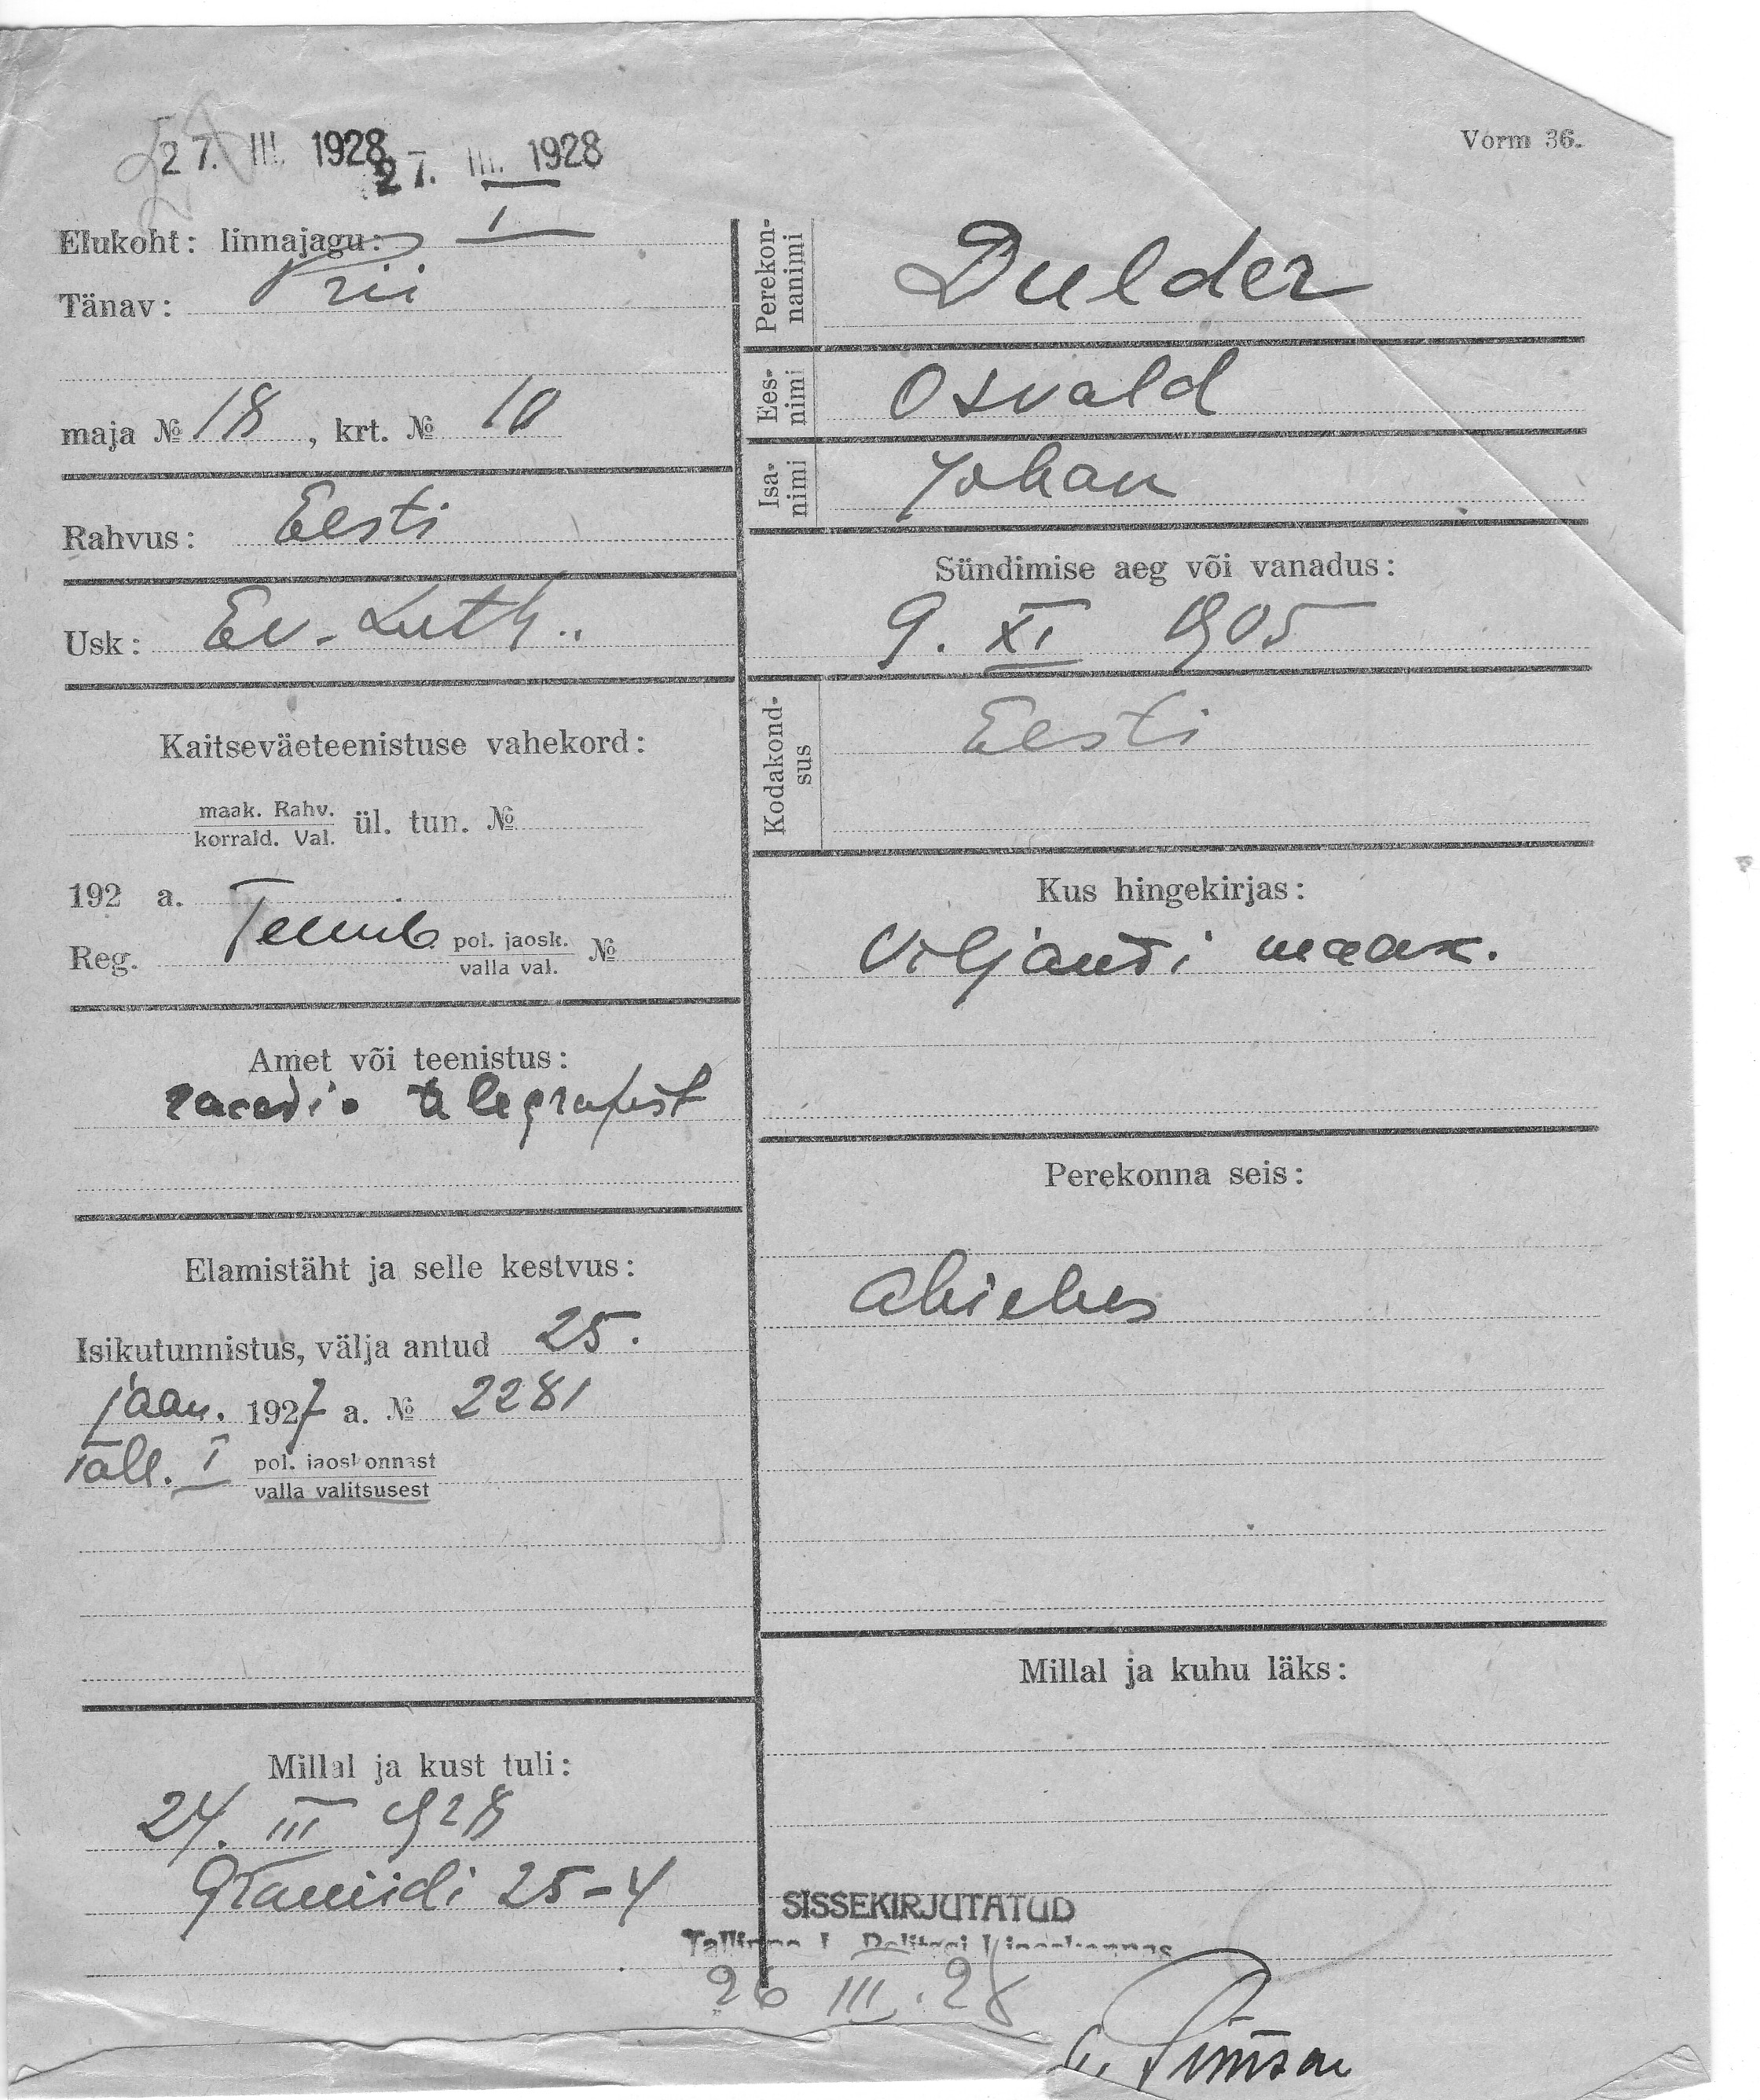 27. III. 1928
27. III. 1928
Vorm 36.
Elukoht: linnajagu: I
Tänav: Prii
maja № 18, krt. № 10
Rahvus: Eesti
Usk: Ev. Luth.
Kaitseväeteenistuse vahekord:
maak. Rahv.
korrald. Val. ül. tun. №
192 a.
Reg. pol. jaosk. №
valla val.
Amet või teenistus:
raadio telegrafist
Elamistäht ja selle kestvus:
Isikutunnistus, välja antud 25.
jaan. 1927 a. № 2281
Tall. I pol. jaoskonnast
valla valitsusest
Millal ja kust tuli:
24. III 928
Graniidi 25-4
Perekon-
nanimi Dulder
Ees-
nimi Osvald
Isa-
nimi Johan
Sündimise aeg või vanadus:
9. XI 905
Kodakond-
sus Eesti
Kus hingekirjas:
Viljandi maak.
Perekonna seis:
abielus
Millal ja kuhu läks:
SISSEKIRJUTATUD
Tallinna I Politsei
26 III. 28